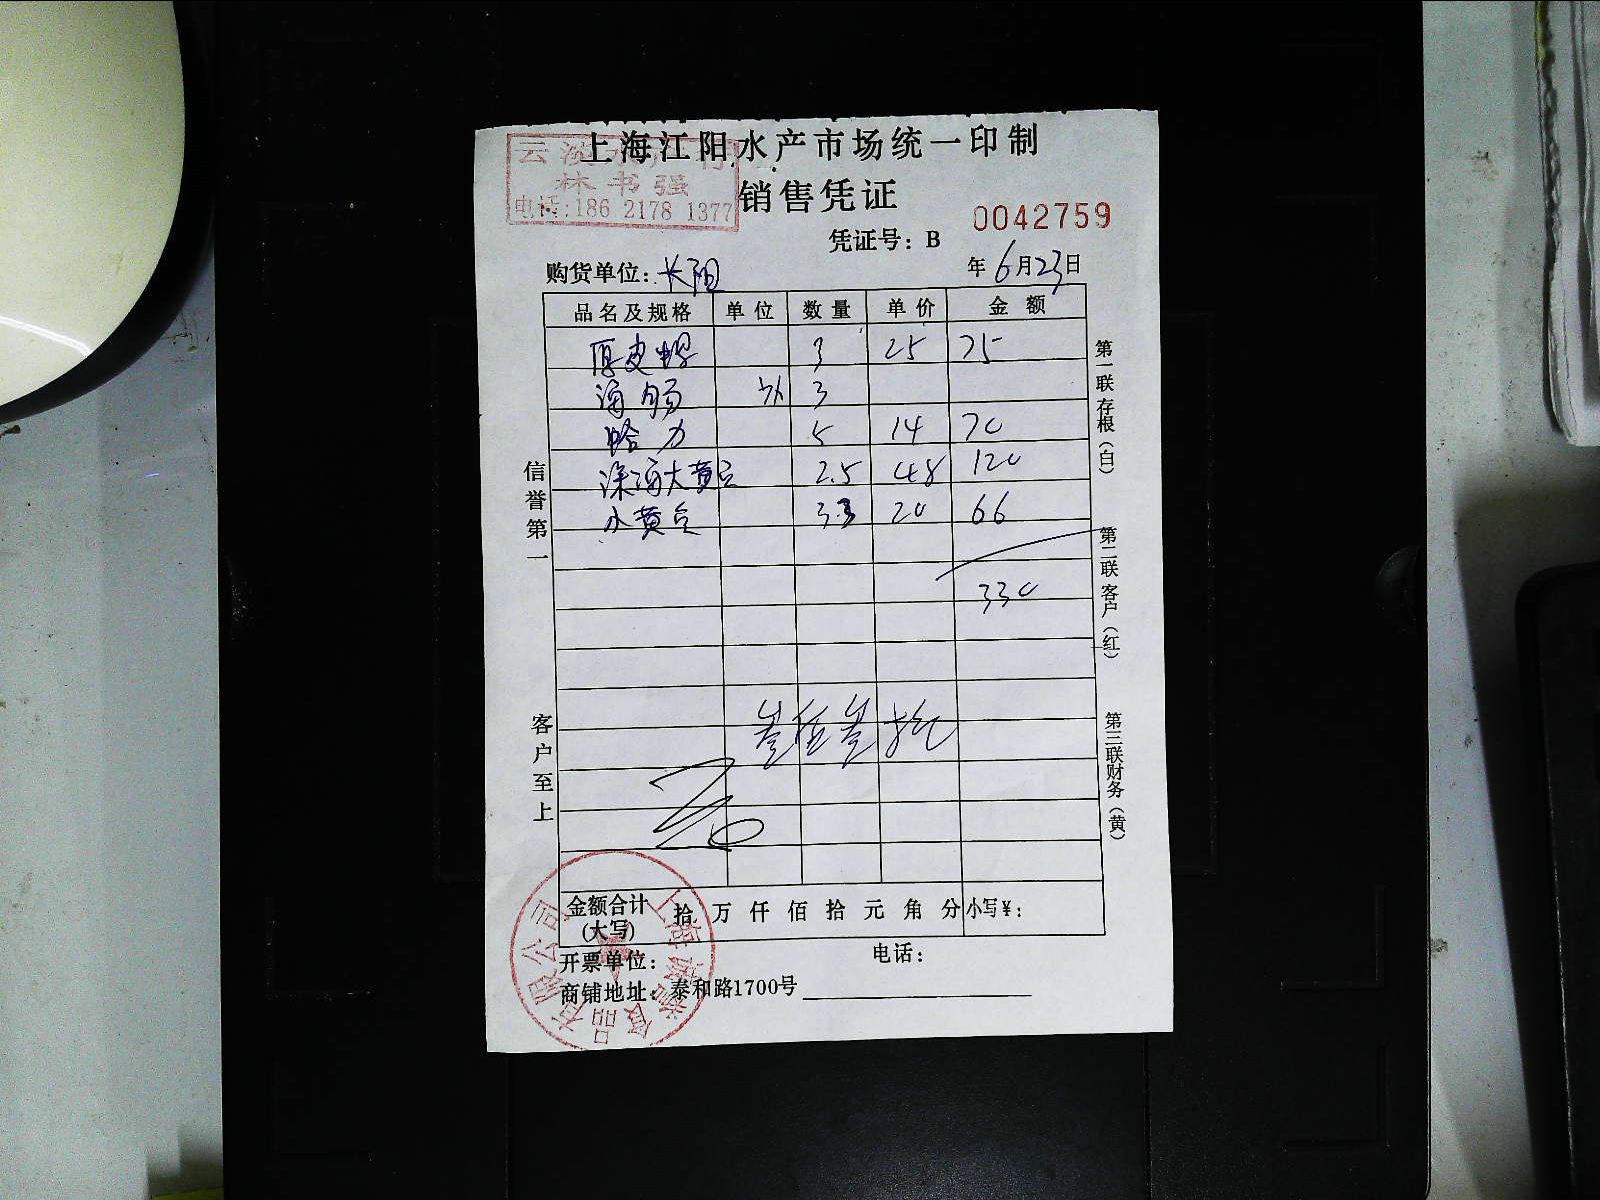 上海江阳水产市场统一印制
云淡水产行
林书强
电话:186 2178 1377
销售凭证
凭证号：B 0042759
购货单位：长阳 年6月23日
品名及规格 单位 数量 单价 金额
厚皮螺 3 25 75
海肠 3
哈力 5 14 70
深海大黄 2.5 48 120
小黄 3.3 20 66
330
叁佰叁拾元
信誉第一
客户至上
第一联存根（白）
第二联客户（红）
第三联财务（黄）
金额合计(大写) 拾 万 仟 佰 拾 元 角 分 小写￥：
开票单位： 电话：
商铺地址：泰和路1700号
食品有限公司